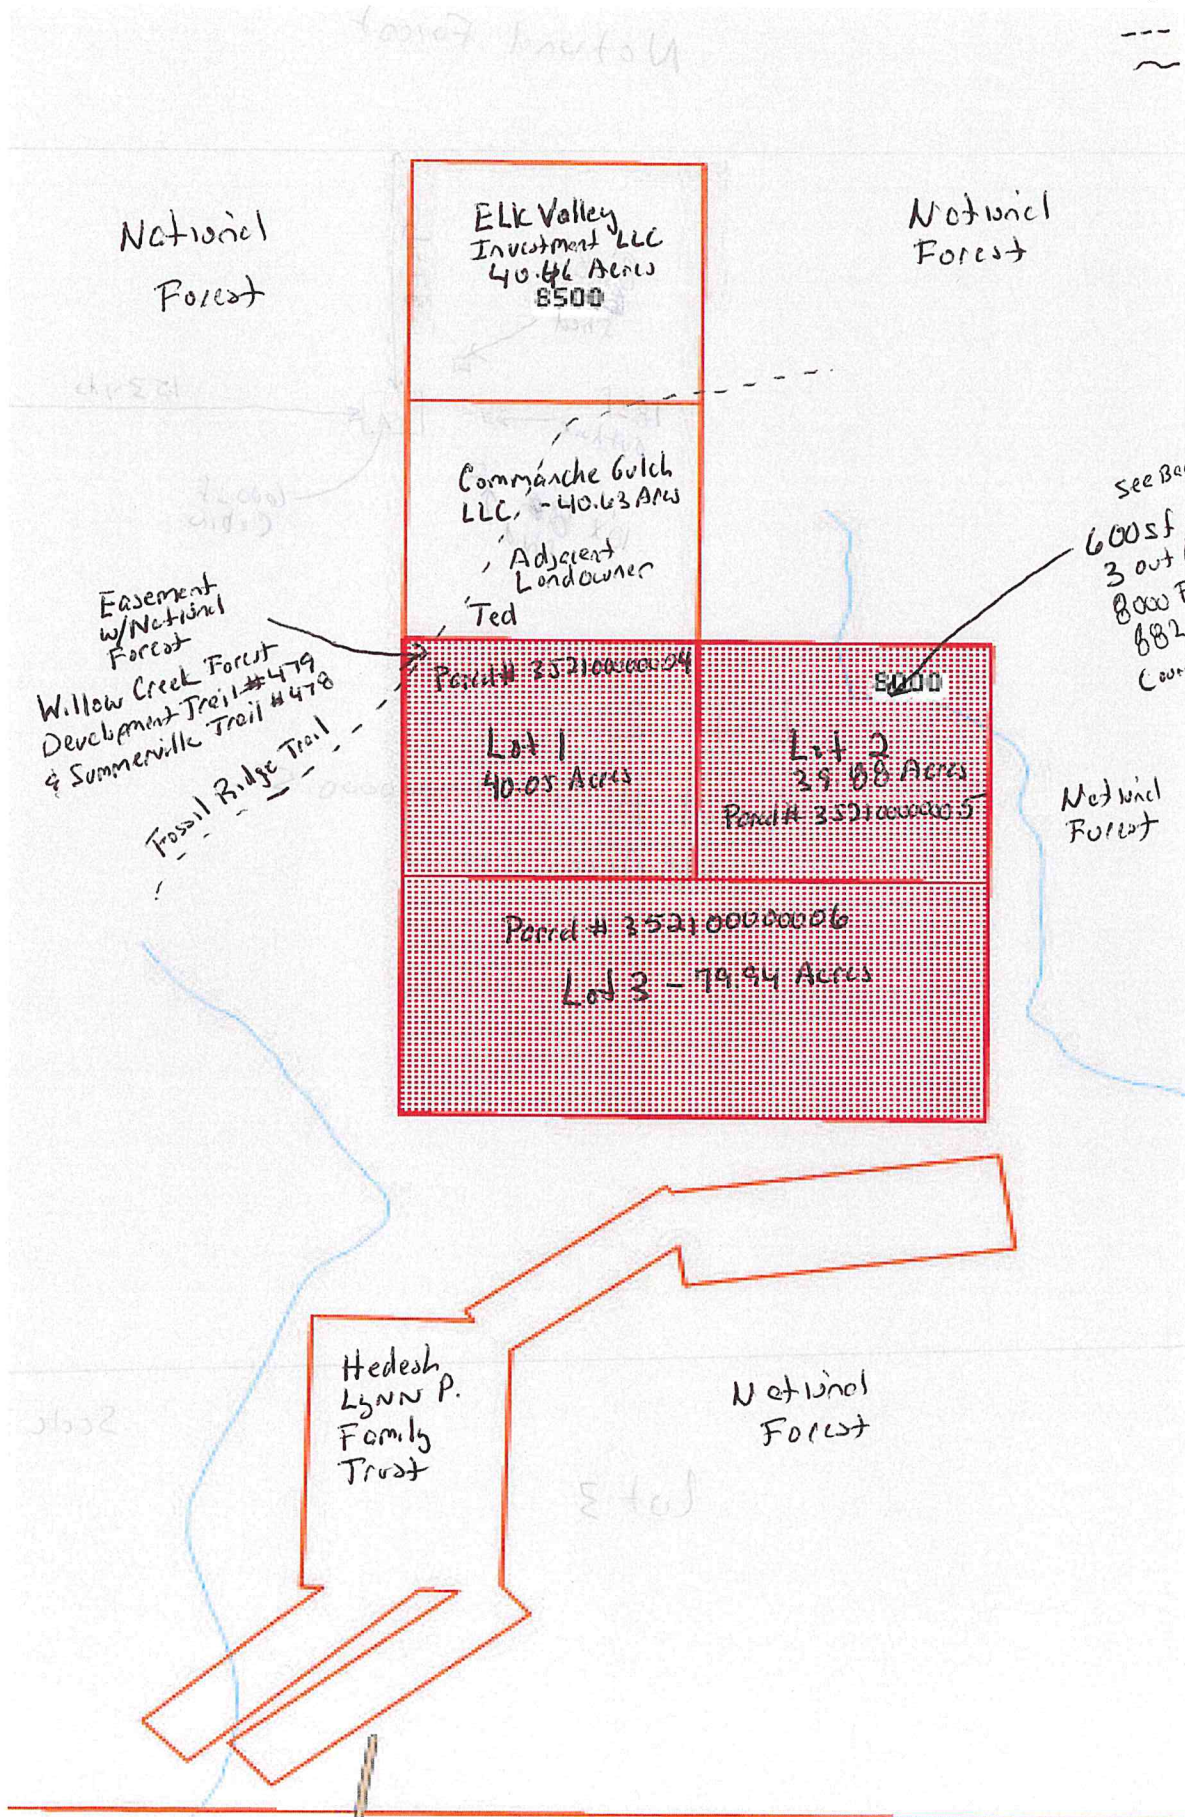 National
Forest
Elk Valley
Investment LLC
40.46 Acres
8500
National
Forest
Commanche Gulch
LLC, - 40.63 Acres
Adjacent
Landowner
Ted
Easement
w/National
Forest
Willow Creek Forest
Development Trail #479
& Summerville Trail #478
Fossil Ridge Trail
See
600sf
3 out
8000
882
Parcel # 352100000004
Lot 1
40.05 Acres
8000
Lot 2
39.88 Acres
Parcel # 352100000005
National
Forest
Parcel # 352100000006
Lot 3 - 79.94 Acres
Lynn P.
Family
Trust
National
Forest